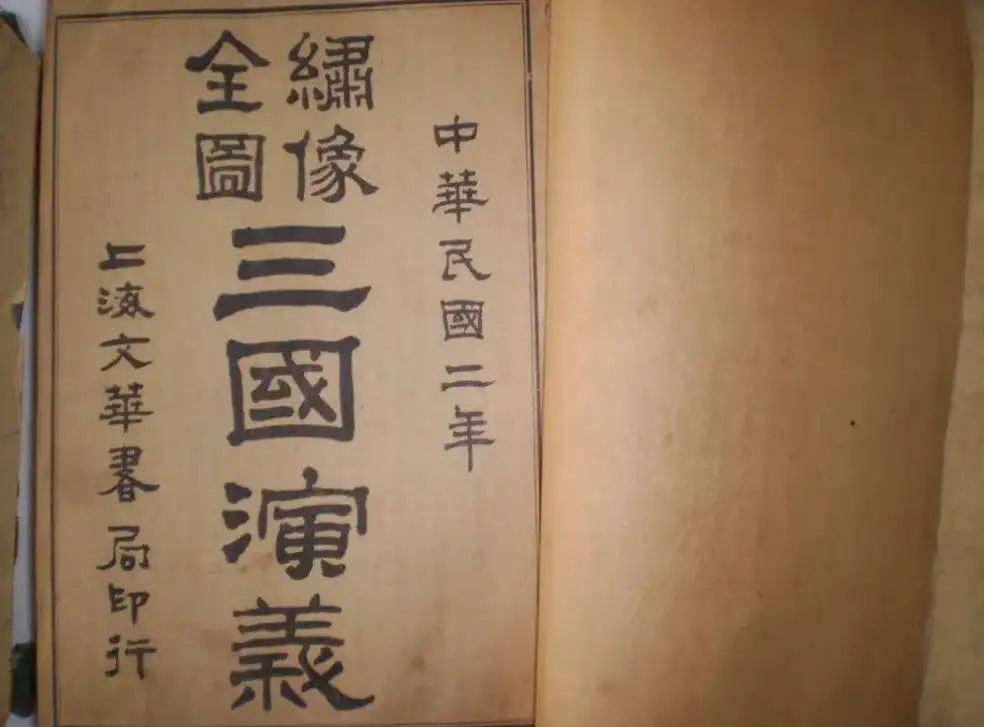 中華民國二年
繡像
全圖
三國演義
上海文華書局印行